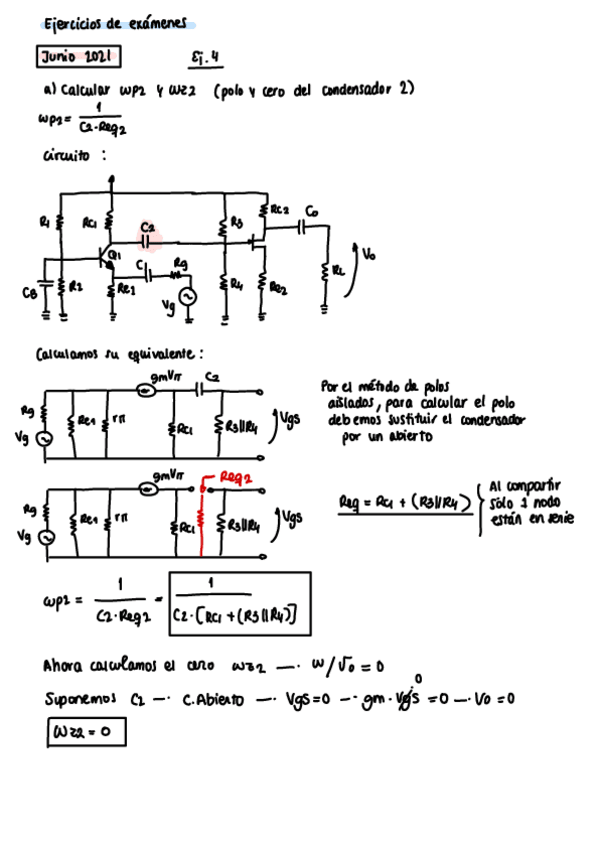 Ejercicios de exámenes
Junio 2021 Ej. 4
a) Calcular wp2 y wz2 (polo y cero del condensador 2)
wp2 = 1 / C2·Req2
circuito :
R1 RC1 C2 R3 RC2 Co
Q1 C Rg R4 RL Vo
CB R2 Re1 Vg Re2
Calculamos su equivalente :
gmVπ C2
Rg Vg Re1 rπ RC1 R3||R4 Vgs
Por el método de polos
aislados, para calcular el polo
debemos sustituir el condensador
por un abierto
gmVπ Req2
Rg Vg Re1 rπ RC1 R3||R4 Vgs
Req = RC1 + (R3||R4)
Al compartir
sólo 1 nodo
están en serie
wp2 = 1 / C2·Req2 = 1 / C2·[RC1 + (R3||R4)]
Ahora calculamos el cero wz2 —· w/Vo = 0
Suponemos C2 —· C.Abierto —· Vgs=0 —· gm·Vgs = 0 —· Vo = 0
0
wz2 = 0